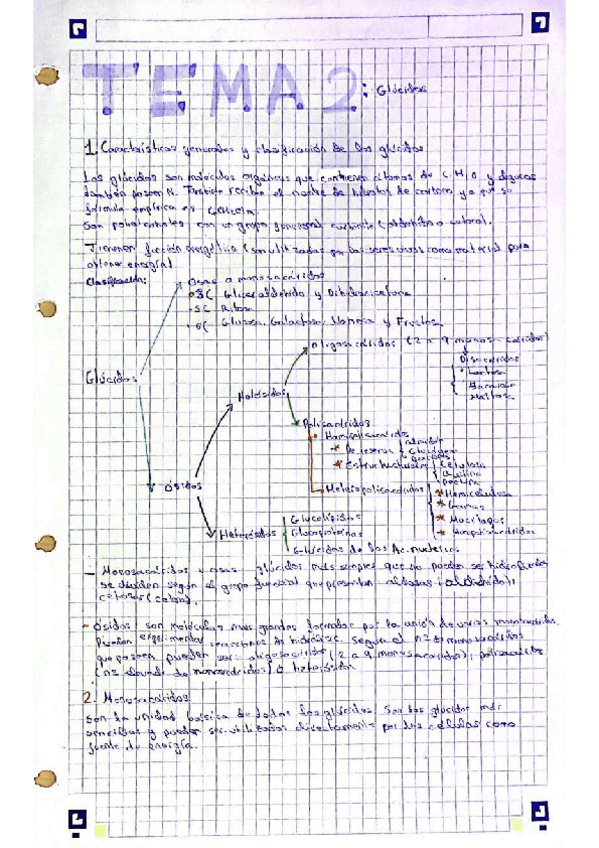 TEMA 2: Glúcidos
1. Características generales y clasificación de los glúcidos
Los glúcidos son moléculas orgánicas que contienen átomos de C, H, O y algunos
también poseen N. También reciben el nombre de hidratos de carbono ya que su
fórmula empírica es
Son polialcoholes con un grupo funcional carbonilo (aldehído o cetona).
Tienen función energética (son utilizados por los seres vivos como material para
obtener energía)
Clasificación:
Osas o monosacáridos
3C Gliceraldehído y Dihidroxicetona
5C Ribosa
6C Glucosa, Galactosa, Manosa y Fructosa
oligosacáridos (2 a 9 monosacáridos)
Disacáridos
Lactosa
Maltosa
Glúcidos
Holósidos
Polisacáridos
Homopolisacáridos
De reserva
almidón
Glucógeno
Estructurales
Celulosa
Quitina
Pectina
Ósidos
Heteropolisacáridos
Hemicelulosa
Gomas
Mucílagos
Mucopolisacáridos
Heterósidos
Glucolípidos
Glucoproteínas
Glúcidos de los Ac. nucleicos
- Monosacáridos u osas: glúcidos más simples que no pueden ser hidrolizados
se dividen según el grupo funcional que presentan: aldosas (aldehído),
cetosas (cetona).
- Ósidos: son moléculas más grandes formadas por la unión de varios monosacáridos.
Pueden experimentar reacciones de hidrólisis. Según el nº de monosacáridos
que poseen pueden ser: oligosacáridos (2 a 9 monosacáridos), polisacáridos
(nº elevado de monosacáridos) o heterósidos
2. Monosacáridos
Son la unidad básica de todos los glúcidos. Son los glúcidos más
sencillos y pueden ser utilizados directamente por las células como
fuente de energía.